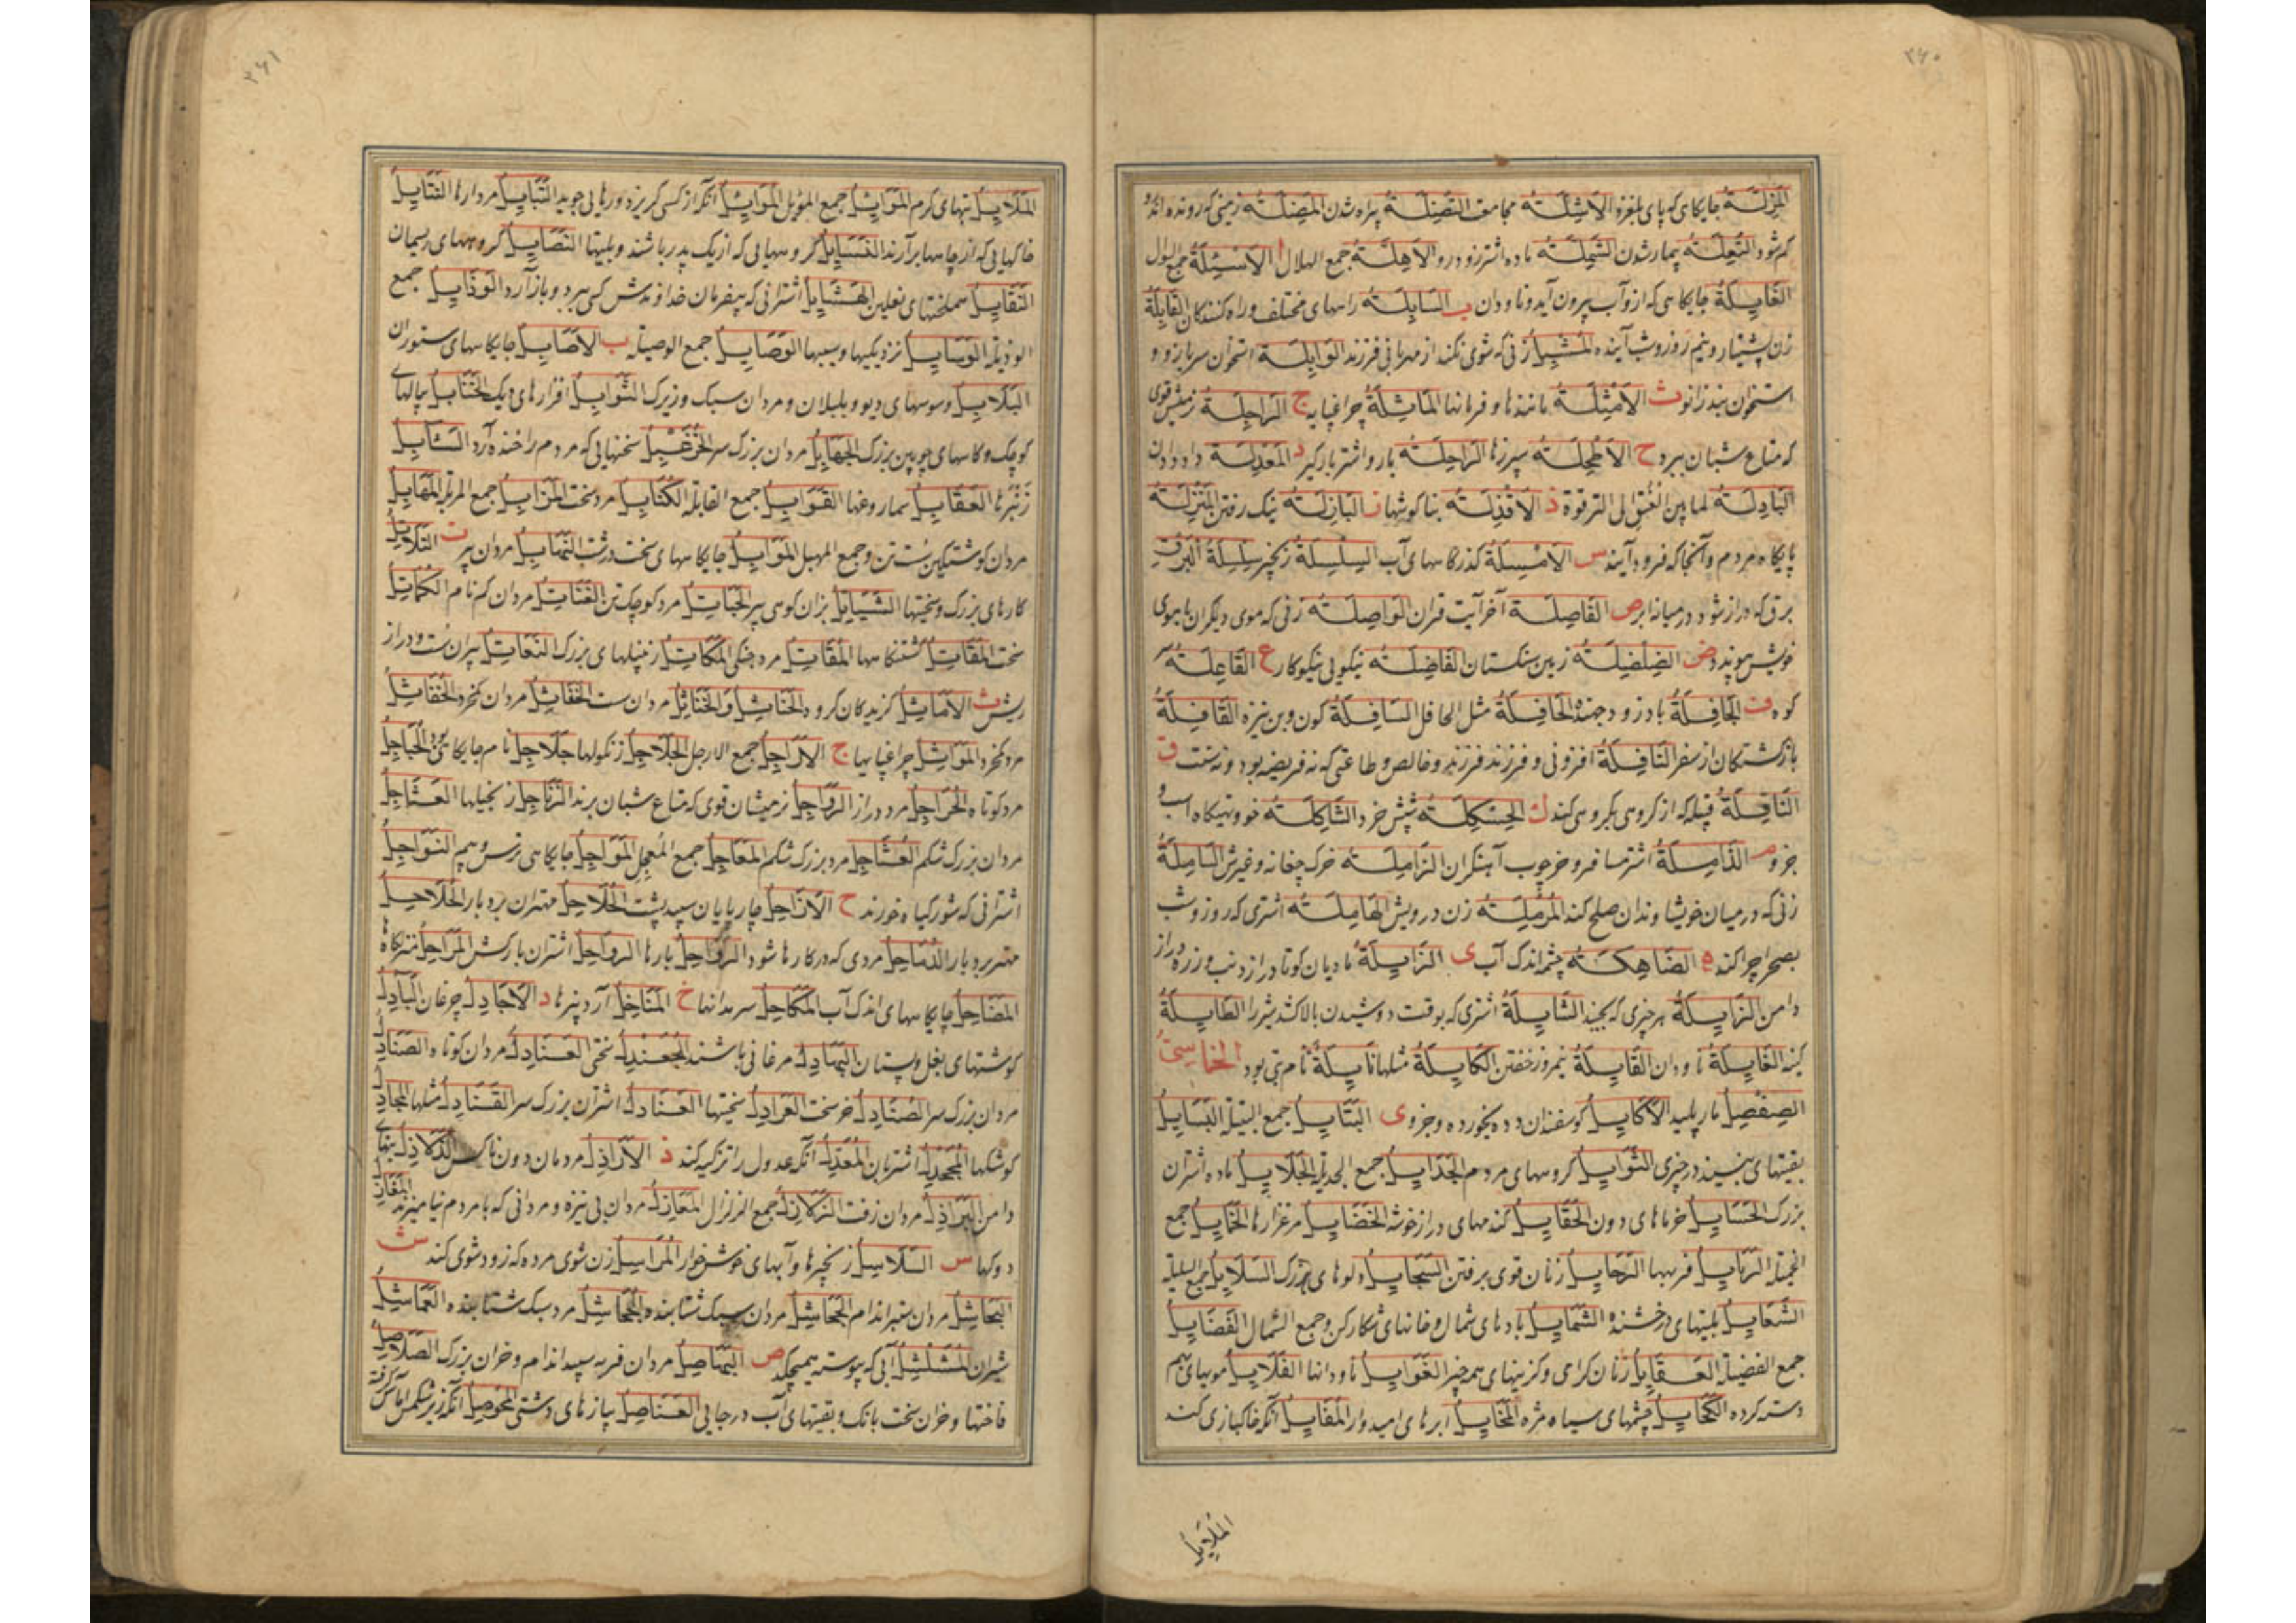 ۲۶۰
المزلة جایگاهی که پای بلغزد الاشلة مجامعت التضلة بیراه شدن المضلة زمینی که رونده اندرو
کم شود التعلة بیمار شدن الشملة ماده اشتر زودرو الاهلة جمع الهلال الاسئلة جمع السؤال
جایگاهی که ازو آب بیرون آید و ناودان ب السابلة راههای مختلف و راه کنندگان القابلة
زنی که شوی نکند از مهربانی فرزند الوابلة استخوان سر بازو و
ث الامثلة مانندها و فرمانها الماثلة چراغپایه ج الراجلة
که متاع شبان برد ح الاطحلة سپرزها الراحلة بار و اشتر بارگیر د المعدلة داد دادن
البادلة لما بین العنق الی الترقوة ذ الاقذلة بناگوشها ز البازلة نیک رفتن المنزلة
پایگاه مردم و آنجا که فرود آیند س الامسلة گذرگاههای آب السلسلة زنجیر سلسلة البرق
برق که دراز شود در میانه ابر ص الفاصلة آخر آیت قران الواصلة زنی که موی دیگران با موی
خویش پیوندد ض الضلضلة زمین سنگستان الفاضلة نیکویی نیکوکار ع القاعلة سر
کوه ف الجافلة باد زود جهنده الحافلة مثل الحافل السافلة کون و بن نیزه القافلة
بازگشتگان از سفر النافلة افزونی و فرزند فرزند و خالص و طاعتی که نه فریضه بود و نه سنت ق
الناقلة قبیله که از گروهی بگروهی کند ك الحسکلة شش خرد الشاکلة خو و تهیگاه اسب و
جزو م الذاملة اشتر مسافر و خر چوب آهنگران الزاملة خرک چغانه و غیرش الساملة
زنی که در میان خویشاوندان صلح کند المرملة زن درویش الهاملة اشتری که روز و شب
بصحرا چرا کند ه الضاهلة چشم اندک آب ی الزایلة مادیان کوتاه دراز دنب و زره دراز
دامن الزایلة هرچیزی که بجنبد الشایلة اشتری که بوقت دوشیدن بالا کشد شیر را الطایلة
کینه الغایلة ناودان القایلة نیمروز خفتن الکایلة مثلها نایلة نام بتی بود الخماسی
الصفصل مار پلید الاکایل گوسفندان دده بخورده و جزو ی البتایل جمع البتیلة
بقیتهای در چیزی الثوایل گروههای مردم الجدایل جمع الجدیلة الجلایل ماده اشتران
بزرگ الحسایل خرماهای دون الحقایل گندمهای دراز خوشه الخضایل مرغزارها الخمایل جمع
الخمیلة الربایل فربهیها الرجایل زنان قوی برفتن السجایل دلوهای بزرگ السلایل جمع السلیلة
الشعایل پلیتهای درخشنده الشمایل بادهای شمال و خانهای شکارکن و جمع الشمال الفضایل
جمع الفضیلة العقایل زنان گرامی و گزینهای همه چیز الغوایل ناودانها الفلایل مویهای بهم
دسته کرده الکحایل چشمهای سیاه مژه المخایل ابرهای امیدوار المفایل آنکه خاکبازی کند
الملایل
۲۶۱
الملایل تبهای گرم الموایل جمع الموئل الموایل آنکه از کسی گریزد و رهایی جوید النبایل مردارها النتایل
خاکهایی که از چاهها برآرند الفسایل گروههایی که از یک پدر باشند و پلیتها النصایل گروههای ریسمان
النقایل سملختهای نعلین الهشایل اشترانی که بیفرمان خداوندش کسی ببرد و باز آرد الوذایل جمع
الوذیلة الوسایل نزدیکیها و سببها الوصایل جمع الوصیلة ب الاصابل جایگاههای ستوران
البلابل وسوسهای دیو و بلبلان و مردان سبک و زیرک التوابل افزارهای دیک الحنابل پیالهای
کوچک و کاسهای چوبین بزرگ مردان بزرگ سر سخنهایی که مردم را خنده آرد السنابل
القوابل جمع القابلة مرد سخت المزابل جمع المزبلة
جمع المهبل الموابل جایگاههای سخت درشت مردان پیر ت التلاتل
کارهای بزرگ و سختیها بزان کوهی پیر مرد کوچک تن مردان کم نام
المقاتل کشتنگاهها المقاتل مرد جنگی المکاتل زنبیلهای بزرگ پیران سست و دراز
ریش ث الاماثل گزیدگان گروه مردان سست مردان کم خرد
مرد کم خرد المواثل چراغپایها ج الاراجل جمع الارجل الجلاجل زنگولها جلاجل نام جایگاهی بود
مرد کوتاه الحراجل مرد دراز الرواجل نرمیشان قوی که متاع شبان برند الزناجل زنجبیلها العثاجل
مردان بزرگ شکم العثاجل مرد بزرگ شکم المعاجل جمع المعجل المواجل جایگاهی ترس و بیم النواجل
اشترانی که شور گیاه خورند ح الازاحل چارپایان سپید پشت الحلاحل مهتران بردبار الحلاحل
مهتر بردبار مردی که در کارها شود الرواحل بارها الرواحل اشتران بارکش المراحل منزلگاه
المضاحل جایگاههای اندک آب المکاحل سرمه دانها خ المناخل آردبیزها د الاجادل چرغان البآدل
گوشتهای بغل و پستان مرغانی باشند سختی العنادل مردان کوتاه الصنادل
مردان بزرگ سر الصنادل خر سخت سختیها العنادل اشتران بزرگ سر القنادل مثلها المجادل
کوشکها اشتربان المعدل آنکه عدول را تزکیه کند ذ الاراذل مردمان دون ناکس
دامن مردان زفت الزلازل جمع الزلزال المعازل مردان بی نیزه و مردانی که با مردم نیامیزند المغازل
دوکها س السلاسل زنجیرها و آبهای خوش خوار المراسل زن شوی مرده که زود شوی کند ش
مردان ستبر اندام الجحاشل مردان سبک شتابنده الجحاشل مرد سبک شتابنده
شیران المشلشل آبی که پیوسته همیچکد ص البهاصل مردان فربه سپید اندام و خران بزرگ الصلاصل
فاختها و خران سخت بانگ و بقیتهای آب در جایی العناصل پیازهای دشتی المحوصل آنکه زیر شکمش آماس گرفته